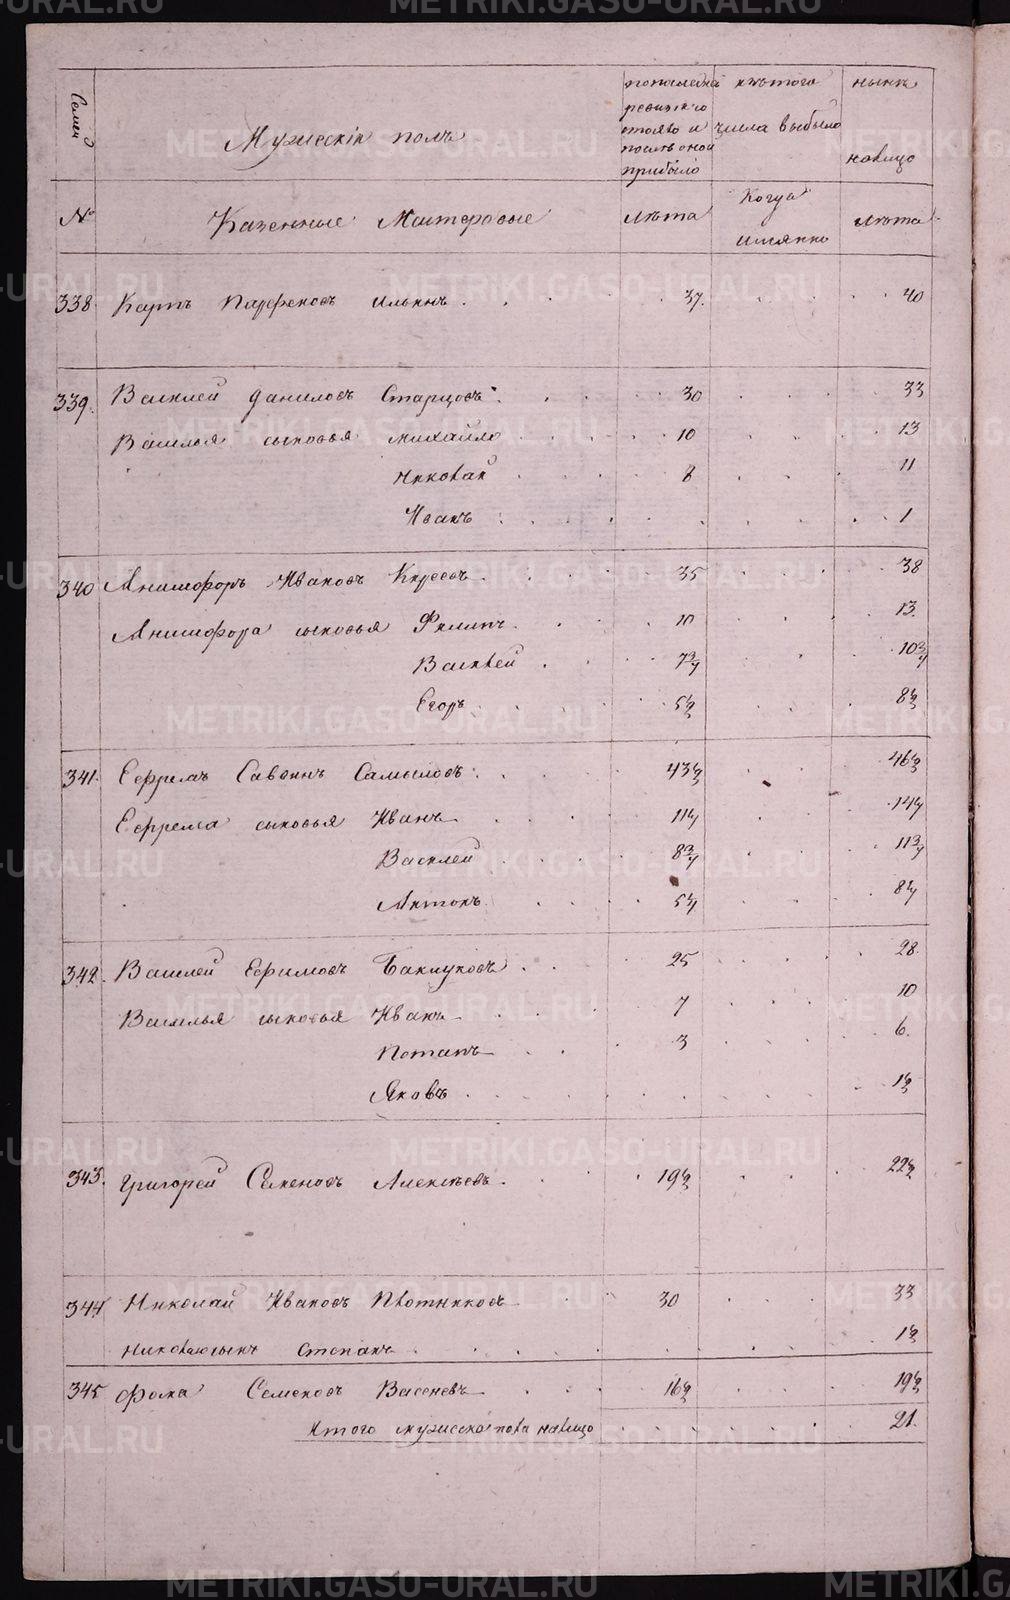 Семей
Мужескій полъ
по последней ревизіи состояло и после оной прибыло
изъ того числа выбыло
ныне на лицо
№
Казенные Мастеровые
лѣта
Когда имянно
лѣта
338. Карпъ Парфеновъ Ильинъ 37. 40
339. Василей Даниловъ Старцовъ 30 33
Василья сыновья Михайло 10 13
Николай 8 11
Иванъ 1
340 Анимфоръ Ивановъ 35 38
Анимфора сыновья Филипъ 10 13.
Василей 7 3/4 10 3/4
Егоръ 5 1/2 8 1/2
341. Ефремъ Савинъ Самыловъ 43 1/2 46 1/2
Ефрема сыновья Иванъ 11 1/4 14 1/4
Василей 8 3/4 11 3/4
Антонъ 5 1/4 8 1/4
342. Василей Ефимовъ Баклуковъ 25 28.
Василья сыновья Иванъ 7 10
Потапъ 3 6.
Яковъ 1 1/2
343. Григорей Семеновъ Алексѣевъ 19 1/2 22 1/2
344 Николай Ивановъ Плотниковъ 30 33
Николая сынъ Степанъ 1 1/2
345 Фома Семеновъ Васеневъ 16 1/2 19 1/2
Итого мужеска пола на лицо 21.
METRIKI.GASO-URAL.RU